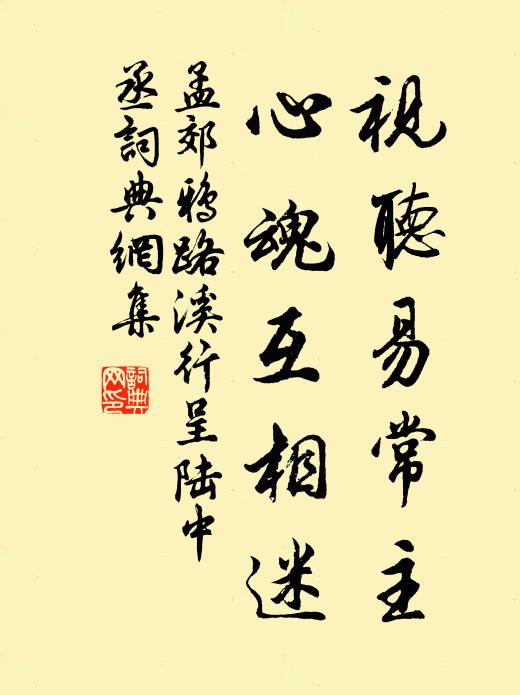 視聽易常主
心魂互相迷
孟郊鴉路溪行呈陆中
丞詞典網集
詞典
网印